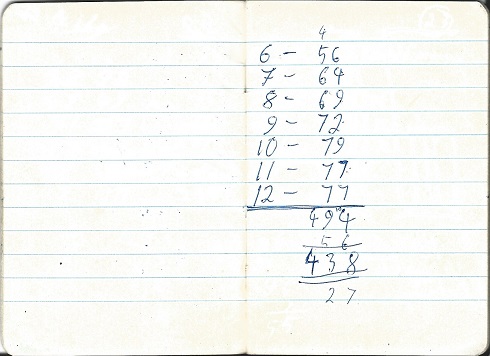 4
6 - 56
7 - 64
8 - 69
9 - 72
10 - 79
11 - 77
12 - 77
494
56
438
27